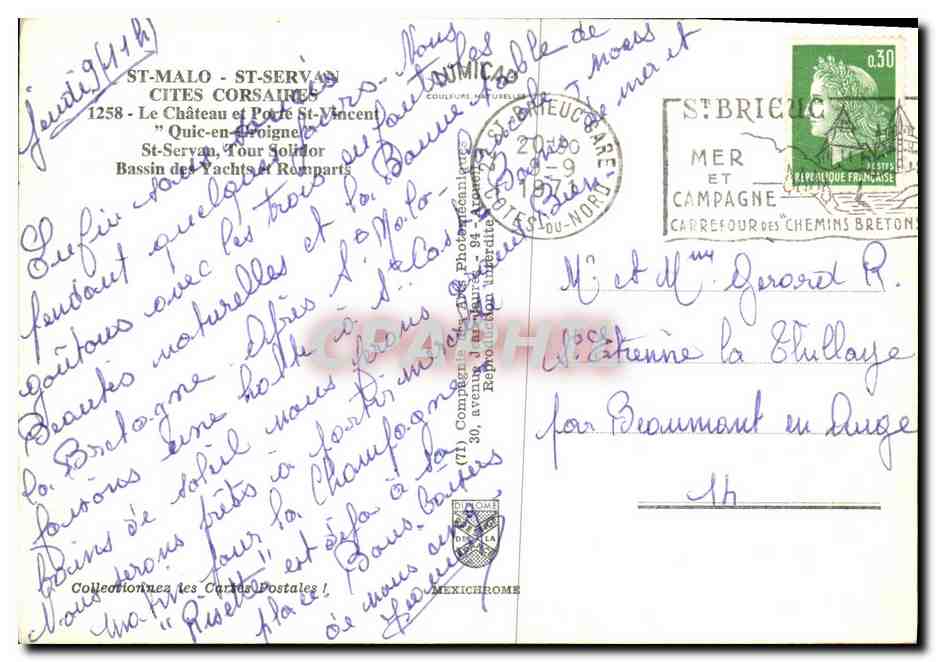 Jeudi 9 (11h)
ST-MALO - ST-SERVAN
CITES CORSAIRES
1258 - Le Château et Porte St-Vincent
" Quic-en-Groigne "
St-Servan, Tour Solidor
Bassin des Yachts et Remparts
Enfin sans soucis
pendant quelques jours - Nous
goûtons avec les trois les
Beautés naturelles et la Bonne Table de
la Bretagne. Après St Malo
faisons une halte à St Cast
Bains de soleil nous ferons
Nous serons prêts à partir mercredi
matin pour la Champagne
"Risette" est déjà à sa
place. Bons baisers
de nous cinq
YUMICAO
COULEURS NATURELLES
(71) Compagnie des Arts Photomécaniques
30, avenue Jean-Jaurès - 94 - Arcueil
Reproduction interdite
DIPLOME
DE LA
MEXICHROME
Collectionnez les Cartes Postales !
ST BRIEUC GARE
20-90
9-9
1971
COTES-DU-NORD
ST BRIEUC
MER
ET
CAMPAGNE
CARREFOUR DES "CHEMINS BRETONS
0,30
POSTES
REPUBLIQUE FRANÇAISE
Mr et Mme Gerard R.
St Etienne la Thillaye
par Beaumont en Auge
14
CPARAMA